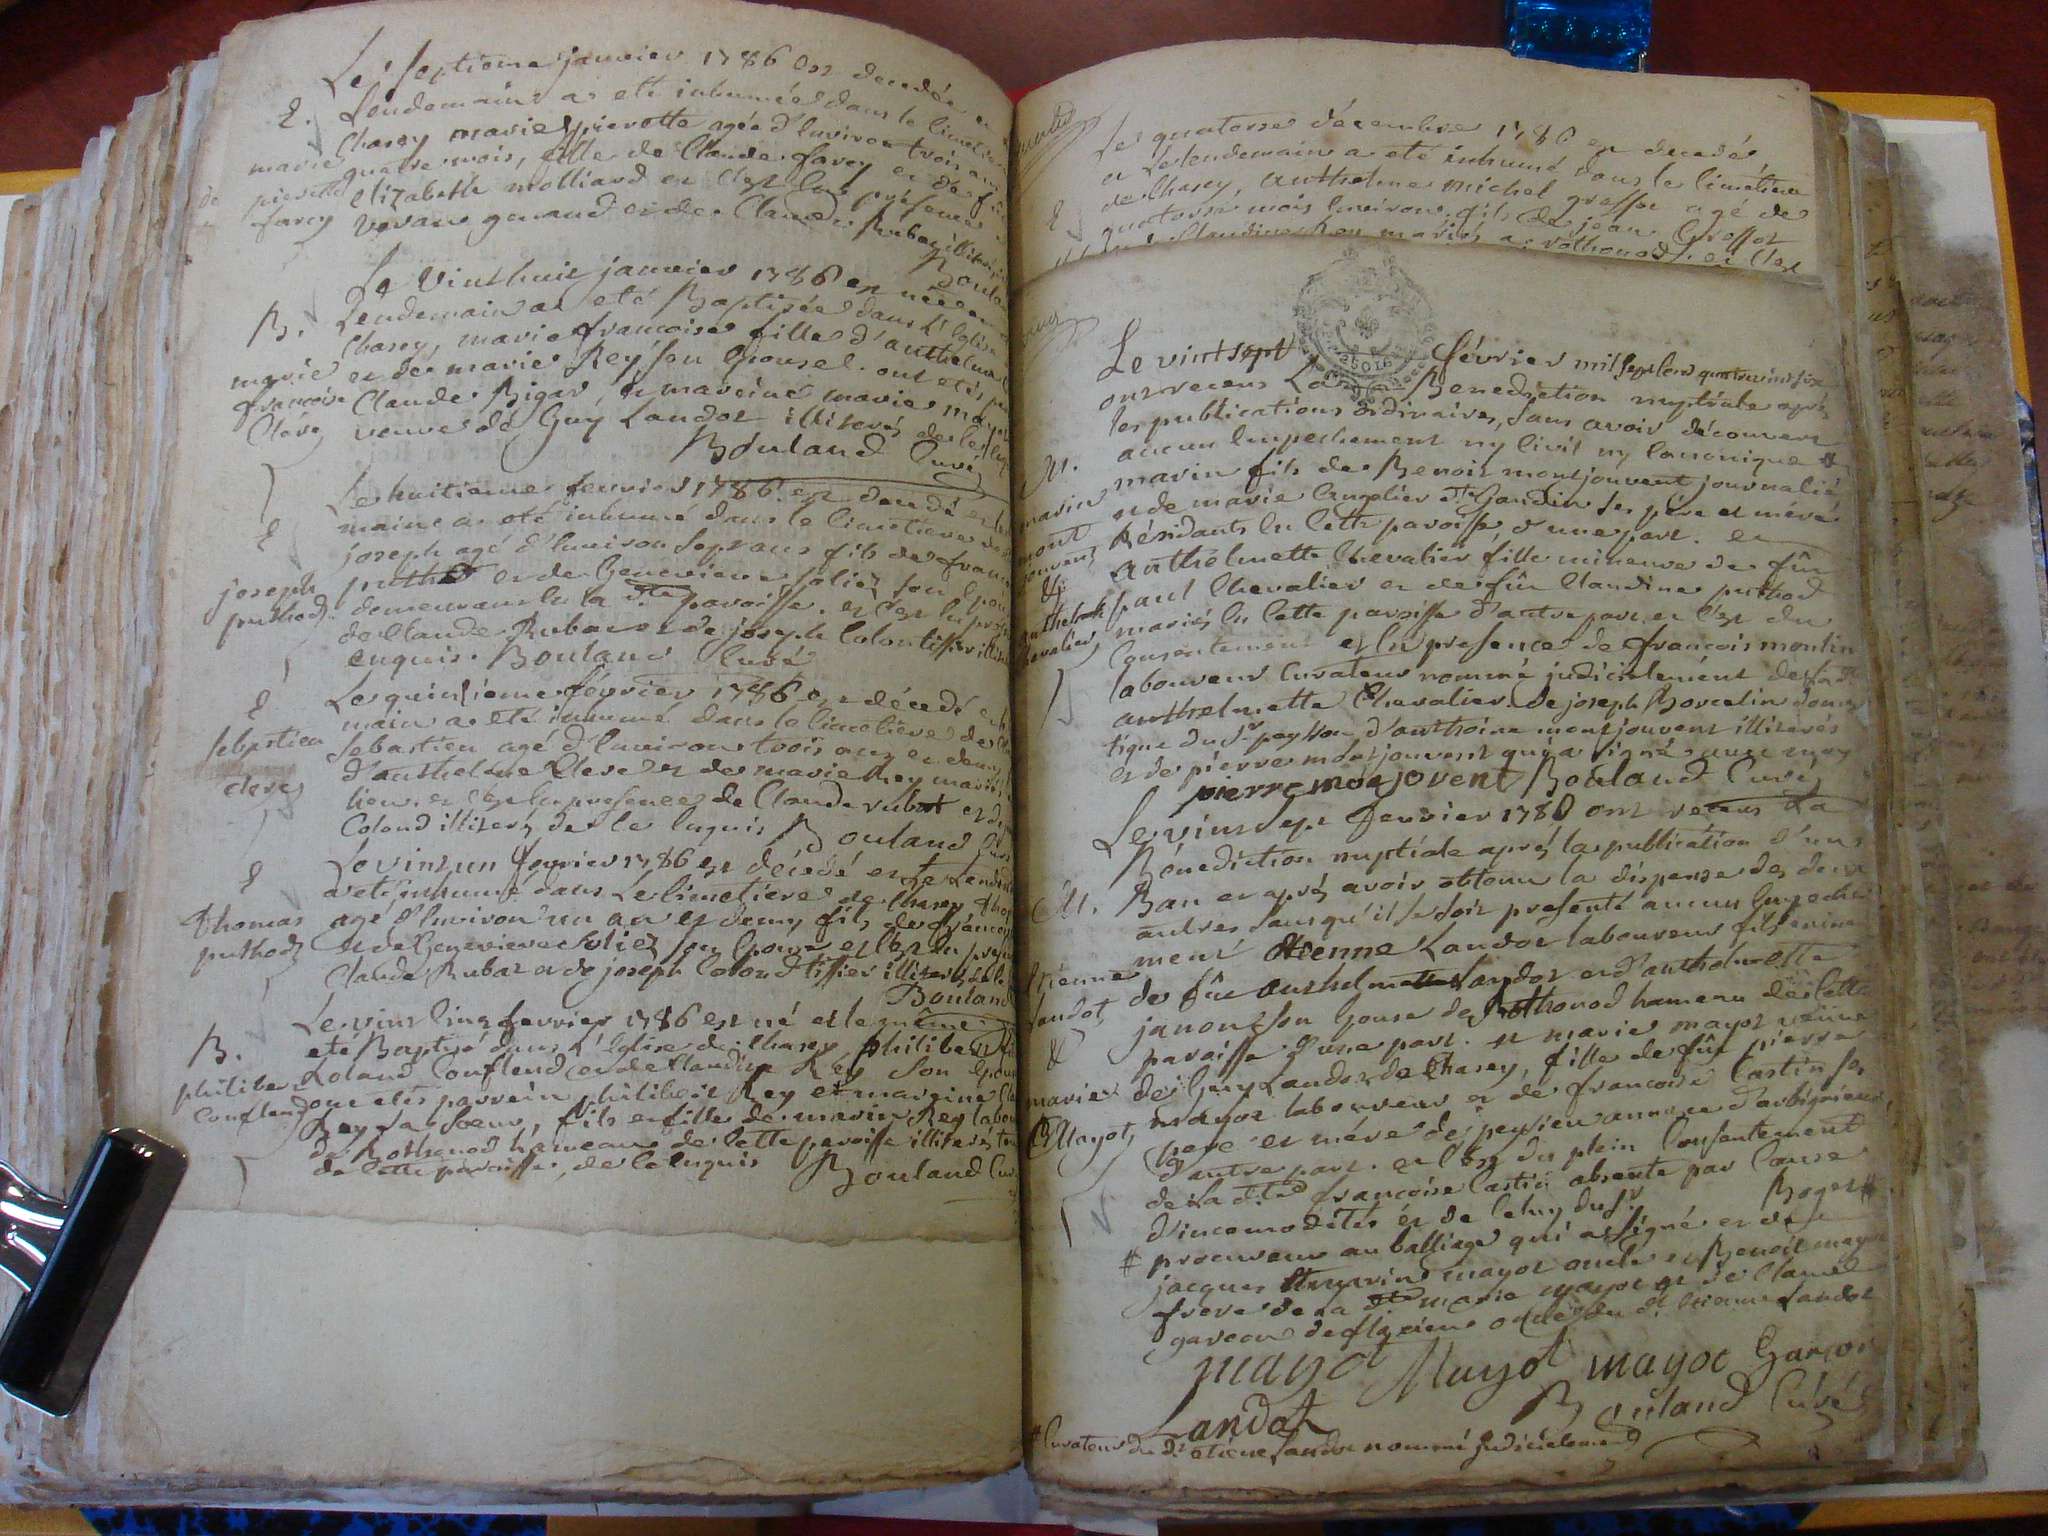 Le septieme janvier 1786 est decedée et le
E. Lendemain a eté inhumée dans le cimetiere
Chazey marie pierrotte agée d'environ trois ans
marie quatre mois, fille de Claude farcy et de
pierotte Elizabette molliard et c'est en presence
farcy
Claude Rubat illiterés
Boulan
Le vint huit janvier 1786 est née et
B. Lendemain a eté Baptisée dans l'Eglise
Chazey, marie francoise fille d'anthelme
marie et de marie Rey son epouse. ont etés
francoise Claude Bigar, et mareine marie mayot
Clere veuve de Guy Landot illiterés de ce enquis
Bouland Curé
Le huitieme fevrier 1786 est decedé et le
E main a eté inhumé dans le cimetiere de
joseph agé d'environ sept ans fils de francois
joseph puthod et de Genevieve Soliez son epouse
puthod demeurans en la dte paroisse. et c'est en presence
de Claude Rubat et de joseph Colon tissier illit
enquis. Bouland Curé
E Le quinzieme février 1786 est décedé et le
main a eté inhumé dans le cimetiere de
sebastien Sebastien agé d'environ trois ans et demy
d'anthelme Clere et de marie Rey mariés
clere lieu. et c'est en presence de Claude rubat et de
Colond illiterés de ce enquis Bouland Curé
E Le vint un fevrier 1786 est décedé et le Lende
a eté inhumé dans Le cimetiere de chazey tho
thomas agé d'environ un an et demy fils de francois
puthod et de Genevieve Soliez son epouse et c'est en prese
Claude Rubat et de joseph Colond tissier illiterés de ce
Bouland
Le vint cinq fevrier 1786 est né et le même
B. eté Baptisé dans l'Eglise de chazey philibert fi
philibe Roland Conflend et de Claudine Rey son epou
Conflend ont etés parrein philibert Rey et marraine Cla
Rey sa soeur, fils et fille de marin Rey labou
de Rothonod hameau de cette paroisse illiterés tous
de cette paroisse, de ce enquis Bouland Cur
Le quatorse décembre 1786 est decedé
et Le lendemain a eté inhumé dans le cimetiere
E de Chazey, anthelme michel gresset agé de
quatorse mois environ. fils de jean Gresset
mariés a rothonod. et c'est
Le vint sept février mil sept cens quatrevint six
ont recus La Benediction nuptiale après
les publications ordinaires, sans avoir découvert
M. aucun empechement ny civil ny canonique #
marin marin fils de Benoit montjouvent journalié
mont et de marie dte Gondin ses père et mère
jouvent Résidants en cette paroisse d'une part. et
& anthelmette Chevalier fille mineure de fût
anthelmette paul Chevalier et de fût Claudine puthod
Chevalier mariés en cette paroisse d'autre part. et c'est du
consentement et en presence de francois moulin
laboureur Curateur nommé judicielement de ladte
anthelmette Chevalier. De joseph Borcelin domes
tique du Sr peysson, d'anthoine montjouvent illiterés
et de pierre montjouvent qui a signé avec moy
pierre monjovent Bouland Curé
Le vint sept fevrier 1786 ont recus La
Bénédiction nuptiale après la publication d'un
M. Ban et après avoir obtenu la dispense des deux
autres sans qu'il se soit presenté aucun empeche
ment Etienne Landot laboureur fils
Etienne de fût anthelme Landot et d'anthelmette
Landot janont son epouse de Rothonod hameau de cette
& paroisse d'une part. et marie mayot veuve
marie de Guy Landot de Chazey, fille de fût pierre
Mayot, mayot laboureur et de francoise Castin ses
pere et mére de peysieu annexe d'arbignieux,
d'autre part. et c'est du plein consentement
de La dte francoise Castin absente par cause
d'incomodités et de celuy du Sr Roger #
# procureur au balliage qui a signé et de
jacques mayot oncle et Benoit mayot
frere de la dte marie mayot et de Claude
garcon de flaxieu du dt Etienne Landot
mayot Mayot mayot Garcon
Landot Bouland Curé
# Curateur du dt etiene Landot nommé judicielement